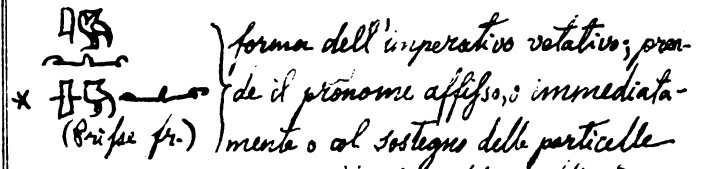 forma dell'imperativo vetativo; pren-
* de il pronome affiſso, o immediata-
(Priſse fr.) mente o col sostegno delle particelle